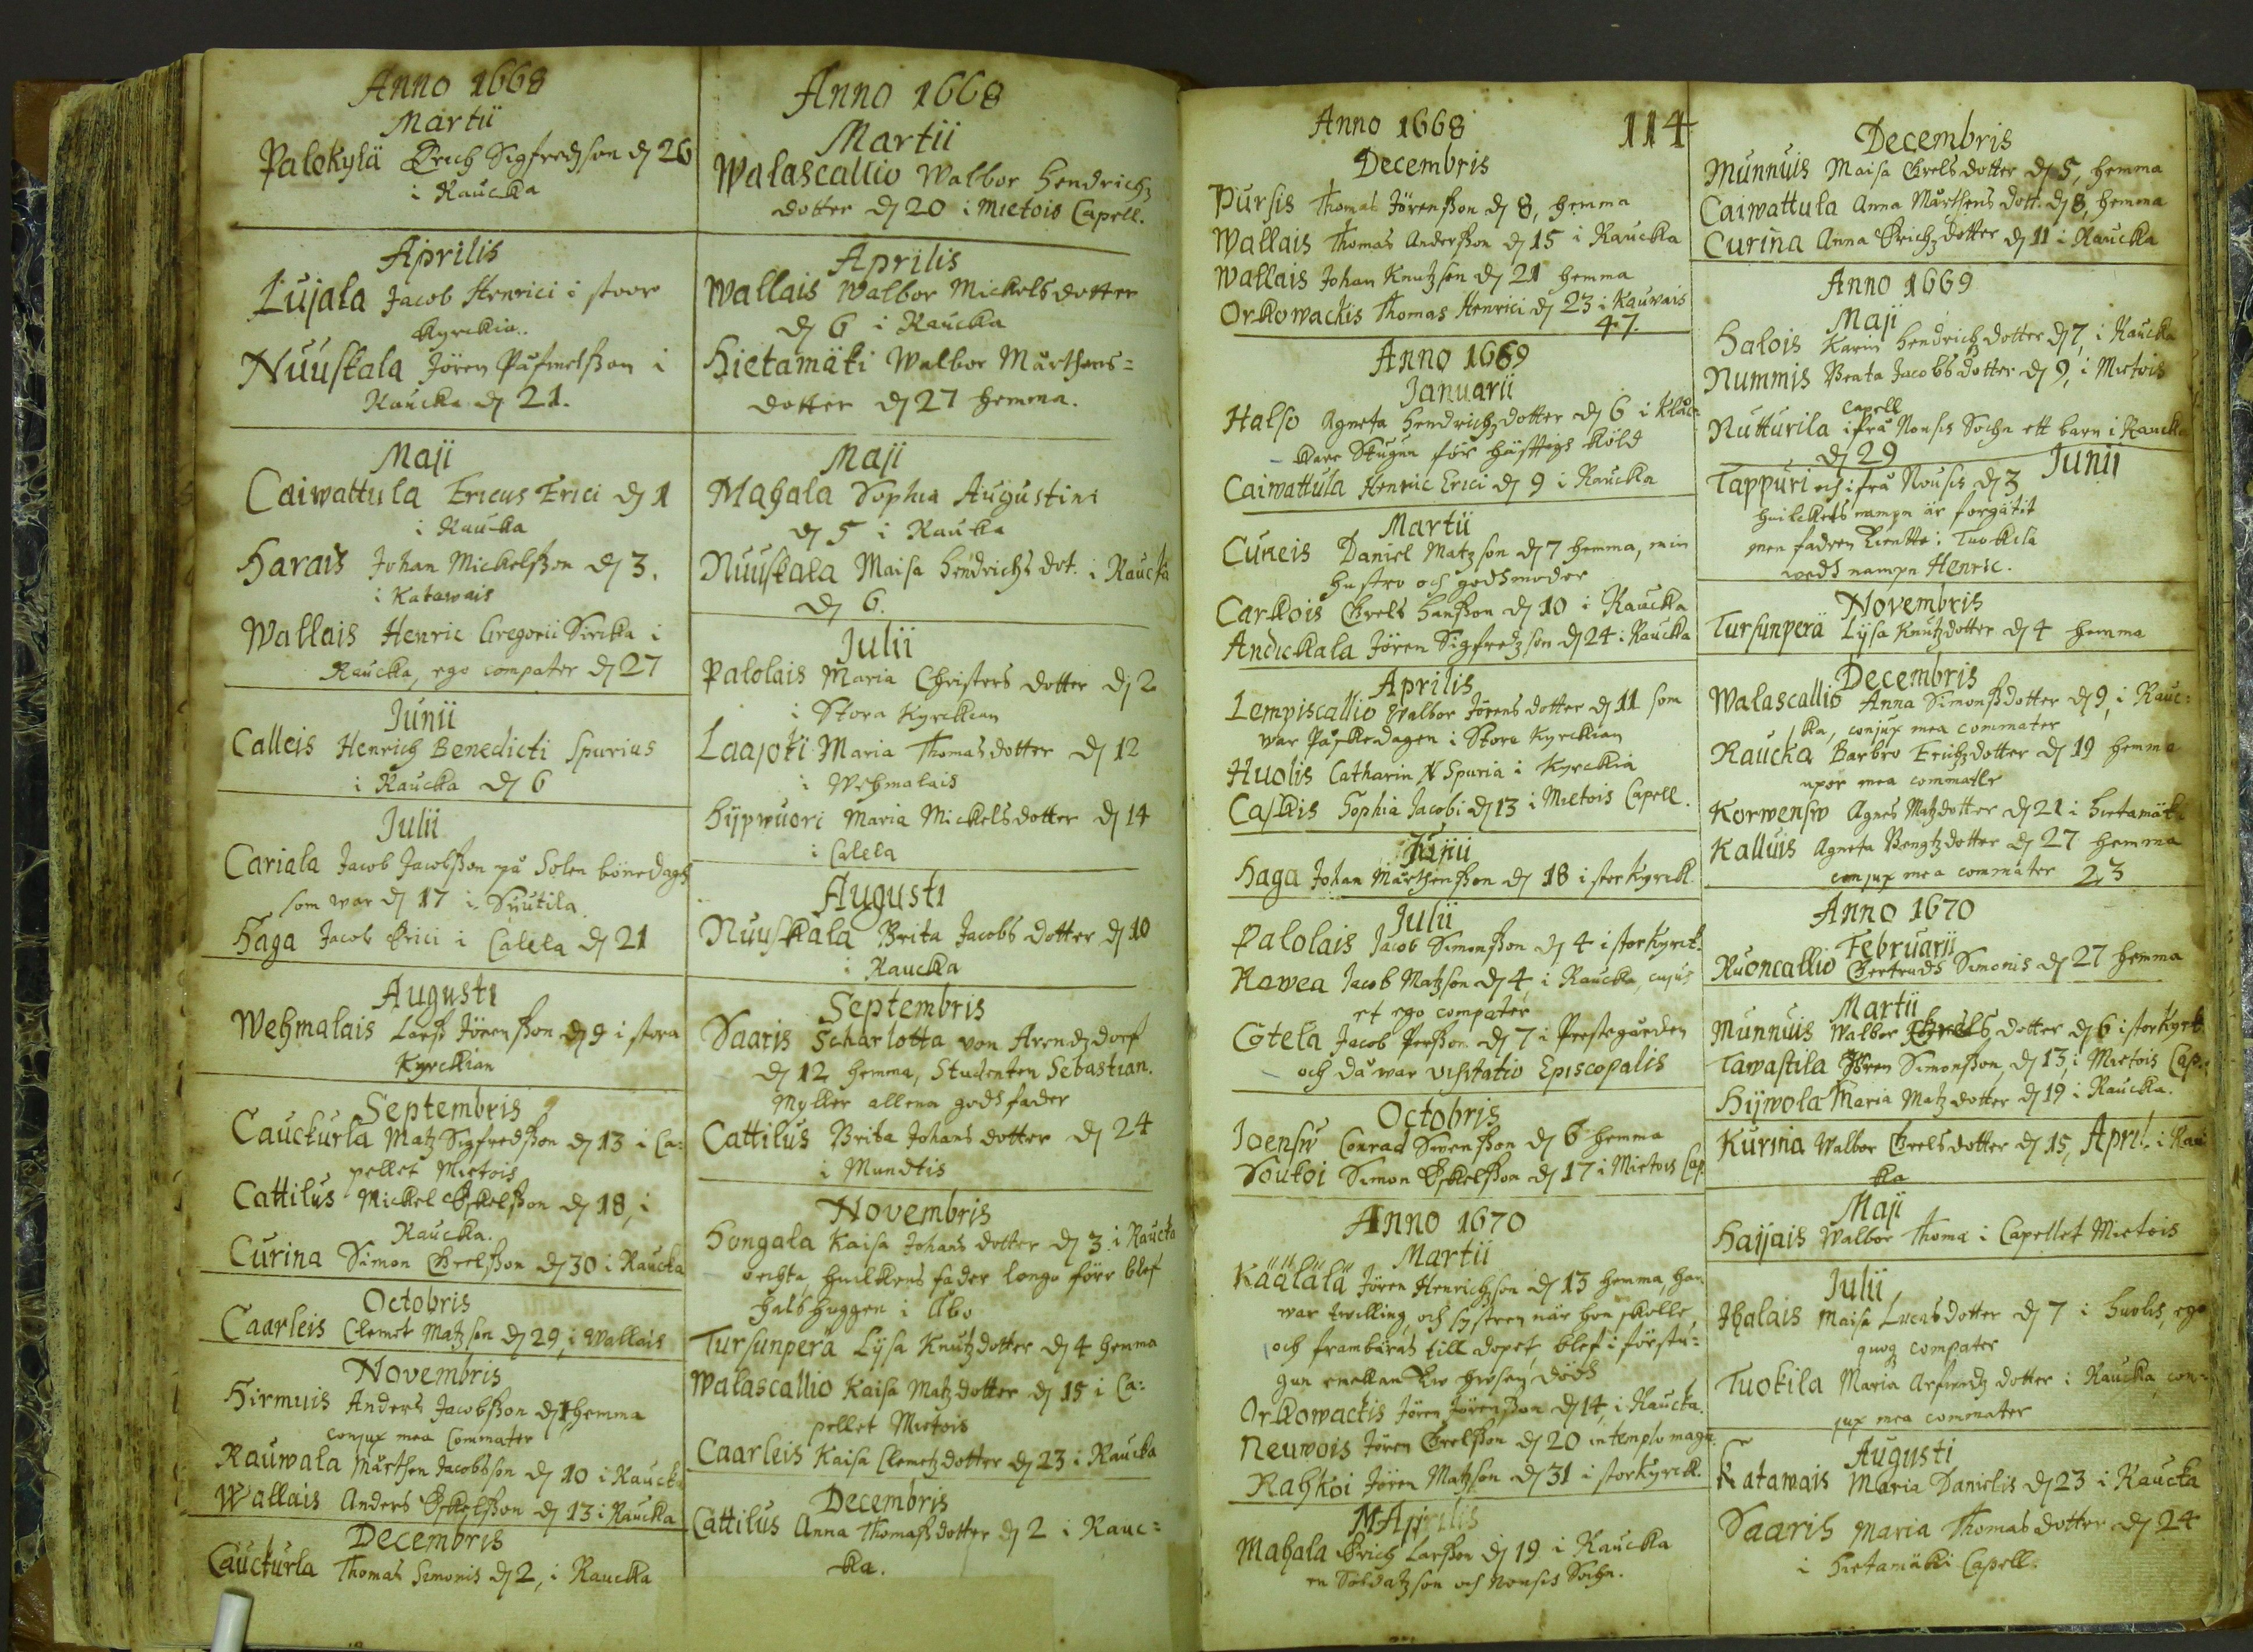 Anno 1668
Martii
Palokylä Erich Sigfredson dj 26
i Raucka
Aprilis
Lujala Jacob Henrici i stoor
kyrckia.
Nuuskala Jören Påfwelsson i
Raucka dj 21.
Maji
Caiwattula Ericus Erici dj 1
i Raucka
Harais Johan Mickelsson dj 3.
i Katawais
Wallais Henric Gregorii Sirika i
Raucka, ego compater dj 27
Junii
Calleis Henrich Benedicti Spurius
i Raucka dj 6
Julii
Cariala Jacob Jacobsson på Solen bönedagh
som war dj 17 i Suutila
Haga Jacob Erici i Calela dj 21
Augusti
Wehmalais Larss Jörensson dj 9 i stora
Kyrckian
Septembris
Cauckurla Matz Sigfredsson dj 13 i Ca:
pellet Mietois
Cattilus Mickel Eskelsson dj 18, i
Raucka.
Curina Simon Grelsson dj 30 i Raucka
Octobris
Caarleis Clemet Matzson dj 29, i Wallais
Novembris
Hirmuis Anders Jacobsson dj 1 hemma
conjux mea Commater
Rauwala Mårthen Jacobsson dj 10 i Raucka
Wallais Anders Eskelsson dj 13 i Raucka
Decembris
Cauckurla Thomas Simonis dj 2, i Raucka
Anno 1668
Martii
Walascallio Walbor Hendrichz
dotter dj 20 i Mietois Capell.
Aprilis
Wallais Walbor Mickelsdotter
dj 6 i Raucka
Hietamäki Walbor Mårthens=
dotter dj 27 hemma.
Maji
Mahala Sophia Augustini
dj 5 i Raucka
Nuuskala Maisa Hendrichs dot. i Raucka
dj 6.
Julii
Palolais Maria Christers dotter dj 2
i Stora Kyrckian
Laajoki Maria Thomasdotter dj 12
i Wehmalais
Hyypwuori Maria Mickelsdotter dj 14
i Calela
Augusti
Nuuskala Brita Jacobs dotter dj 10
i Raucka
Septembris
Saaris Scharlotta von Arendzdorf
dj 12 hemma, Studenten Sebastian.
Myller allena gods fader
Cattilus Brita Johans dotter dj 24
i Mundtis
Novembris
Hongala Kaisa Johans dotter dj 3. i Raucka
oechta, huilkens fader longo förr blef
halshuggen i Åbo
Tursunperä Lysa Knutzdotter dj 4 hemma
Walascallio Kaisa Matzdotter dj 15 i Ca:
pellet Mietois
Caarleis Kaisa Clemetzdotter dj 23 i Raucka
Decembris
Cattilus Anna Thomassdotter dj 2 i Rauc=
ka.
Anno 1668
114
Decembris
Pursis Thomas Jörensson dj 8, hemma
Wallais Thomas Andersson dj 15 i Raucka
Wallais Johan Knutzson dj 21 hemma
Orkowackis Thomas Henrici dj 23 i Kauwais
47.
Anno 1669
Januarii
Halso Agneta Hendrichzdotter dj 6 i Kläc=
kare Stugun för häfftigs köld
Caiwattula Henric Erici dj 9 i Raucka
Martii
Cuneis Daniel Matzson dj 7 hemma, min
hustro och godhmoder
Carkois Grels Hansson dj 10 i Raucka
Andickala Jören Sigfredzson dj 24 i Raucka
Aprilis
Lempiscallio Walbor Jörens dotter dj 11 som
war Påskedagen i Stora Kyrckian
Huolis Catharin N Spuria i Kyrckia
Caskis Sophia Jacobi dj 13 i Mietois Capell.
Junii
Haga Johan Mårthensson dj 18 i storkyrck.
Julii
Palolais Jacob Simonsson dj 4 i storkyrck.
Rawea Jacob Matzson dj 4 i Raucka, cujus
et ego compater
Cotela Jacob Persson dj 7 i Prestegården
och då war visitatio Episcopalis
Octobris
Joensu Conrad Swensson dj 6 hemma
Soukoi Simon Eskelsson dj 17 i Mietois Cap.
Anno 1670
Martii
Käälälä Jören Henrichzson dj 13 hemma, han
war twilling och systren när hon skulle,
och frambäras till dopet, blef i förstu=
gun emellan dödh
Orkowackis Jören Jörensson dj 14, i Raucka.
Neuwois Jören Grelsson dj 20 in templo magn.
Rahkoi Jören Matzson dj 31 i storkyrck.
Aprilis
Mahala Erich Larsson dj 19 i Raucka
en Soldatzson och Nousis Sochn.
Decembris
Munnuis Maisa Grelsdotter dj 5, hemma
Caiwattula Anna Mårthens dott. dj 8, hemma
Curina Anna Erichzdotter dj 11 i Raucka
Anno 1669
Maji
Halois Karin Hendrichzdotter dj 7, i Raucka
Nummis Beata Jacobsdotter dj 9, i Mietois
Capell
Nutturila ifrå Nousis Sochn ett barn i Raucka
dj 29
Junii
Tappuri och ifrå Nousis dj 3
huilckets nampn är forgätit
men fadren kientte i Tuokila
wedh nampn Henric.
Novembris
Tursunperä Lysa Knutzdotter dj 4 hemma
Decembris
Walascallio Anna Simonssdotter dj 9, i Rauc:
ka, conjux mea commater
Raucka Barbro Erichzdotter dj 19 hemma
uxor mea commater
Korwensu Agnes Matzdotter dj 21 i Hietamäki
Kalluis Agneta Bengtzdotter dj 27 hemma
conjux mea commater 23
Anno 1670
Februarii
Ruoncallio Gertrudh Simonis dj 27 hemma
Martii
Munnuis Walbor Grels dotter dj 6 i storkyrk
Tawastila Jören Simonsson, dj 13, i Mietois Cap.
Hijwola Maria Matzdotter dj 19 i Raucka.
Kurina Walbor Grelsdotter dj 15, April. i Rau
ka
Maji
Haijais Walbor Thomæ i Capellet Mietois
Julii
Ihalais Maisa Lucasdotter dj 7 i huolis, ego
quoq compater
Tuokila Maria Arfwedz dotter i Raucka con=
jux mea commater
Augusti
Katawais Maria Danielis dj 23 i Raucka
Saaris Maria Thomasdotter dj 24
i Hietamäki Capell.